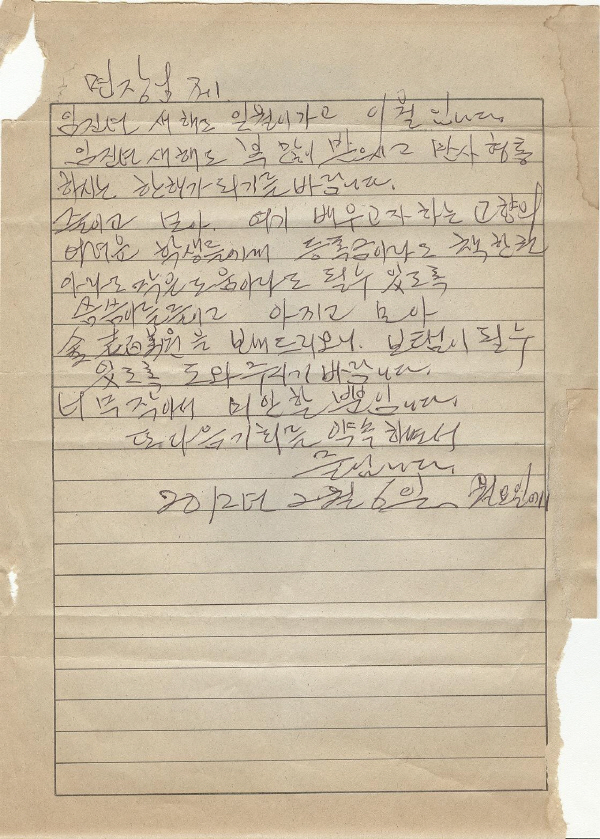 면장님 제.
임진년 새해도 일월이가고 이월 입니다.
임진년 새해도 복 많이 받으시고 만사 형통
하시는 한해가되기를 바랍니다.
모아. 여기 배우고자하는 고향의
어려운 학생들에께 등록금이라도 책 한권
이라도 작은 도움이라도 될수 있도록
아끼고 모아
金 원을 보내드리오니. 보탬이 될수
있도록 도와주시기 바랍니다.
너무 작아서 미안할 뿐입니다.
또다음기회를 약속하면서
줄입니다.
2012년 2월 6일. 월요일에